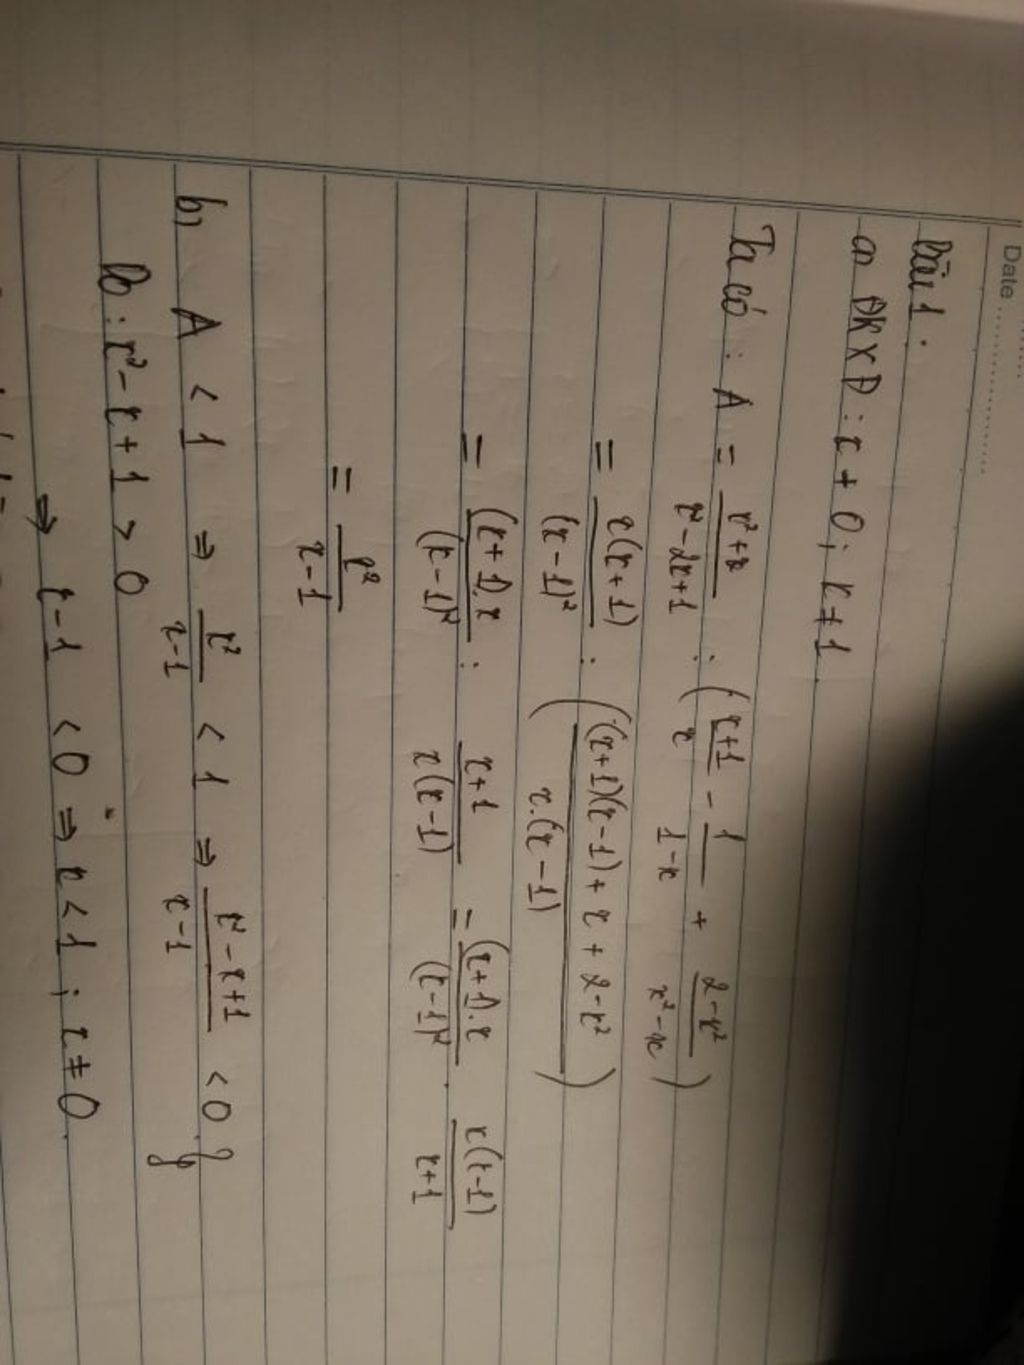 Date
Bài 1.
a) ĐKXĐ: x ≠ 0; x ≠ 1
Ta có: A = (x²+x)/(x²-2x+1) : ((x+1)/x - 1/(1-x) + (2-x²)/(x²-x))
= x(x+1)/(x-1)² : (((x+1)(x-1) + x + 2-x²)/(x.(x-1)))
= (x+1).x/(x-1)² : (x+1)/(x(x-1)) = (x+1).x/(x-1)² . x(x-1)/(x+1)
= x²/(x-1)
b) A < 1 ⇒ x²/(x-1) < 1 ⇒ (x²-x+1)/(x-1) < 0 }
Do: x²-x+1 > 0
⇒ x-1 < 0 ⇒ x < 1; x ≠ 0.